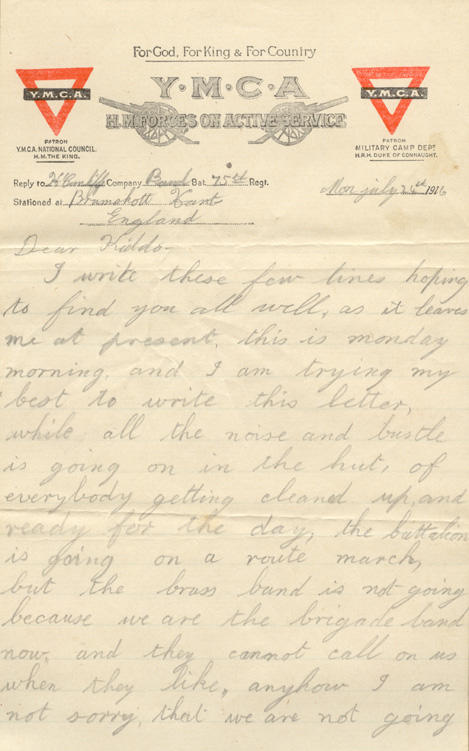 For God, For King & For Country
Y·M·C·A
H.M. FORCES ON ACTIVE SERVICE
Y.M.C.A.
PATRON
Y.M.C.A. NATIONAL COUNCIL.
H.M. THE KING.
Y.M.C.A.
PATRON
MILITARY CAMP DEPT
H.R.H. DUKE OF CONNAUGHT.
Reply to H Cunliffe Company Band Bat. 75th Regt.
Mon july 24th 1916
Stationed at Bramshott Hant
England
Dear Kiddo-
I write these few lines hoping
to find you all well, as it leaves
me at present, this is monday
morning, and I am trying my
best to write this letter,
while all the noise and bustle
is going on in the hut, of
everybody getting cleaned up, and
ready for the day, the battalion
is going on a route march,
but the brass band is not going
because we are the brigade band
now, and they cannot call on us
when they like, anyhow I am
not sorry, that we are not going